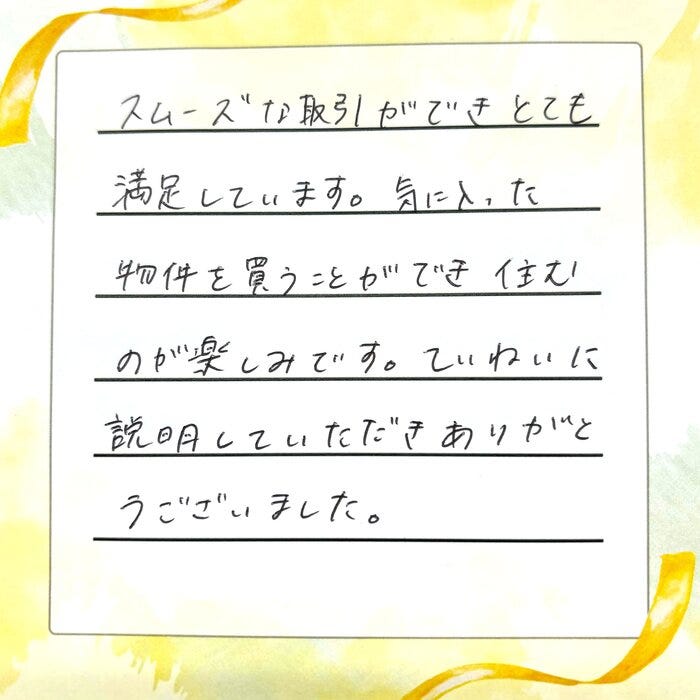 スムーズな取引ができとても
満足しています。気に入った
物件を買うことができ住む
のが楽しみです。ていねいに
説明していただきありがと
うございました。